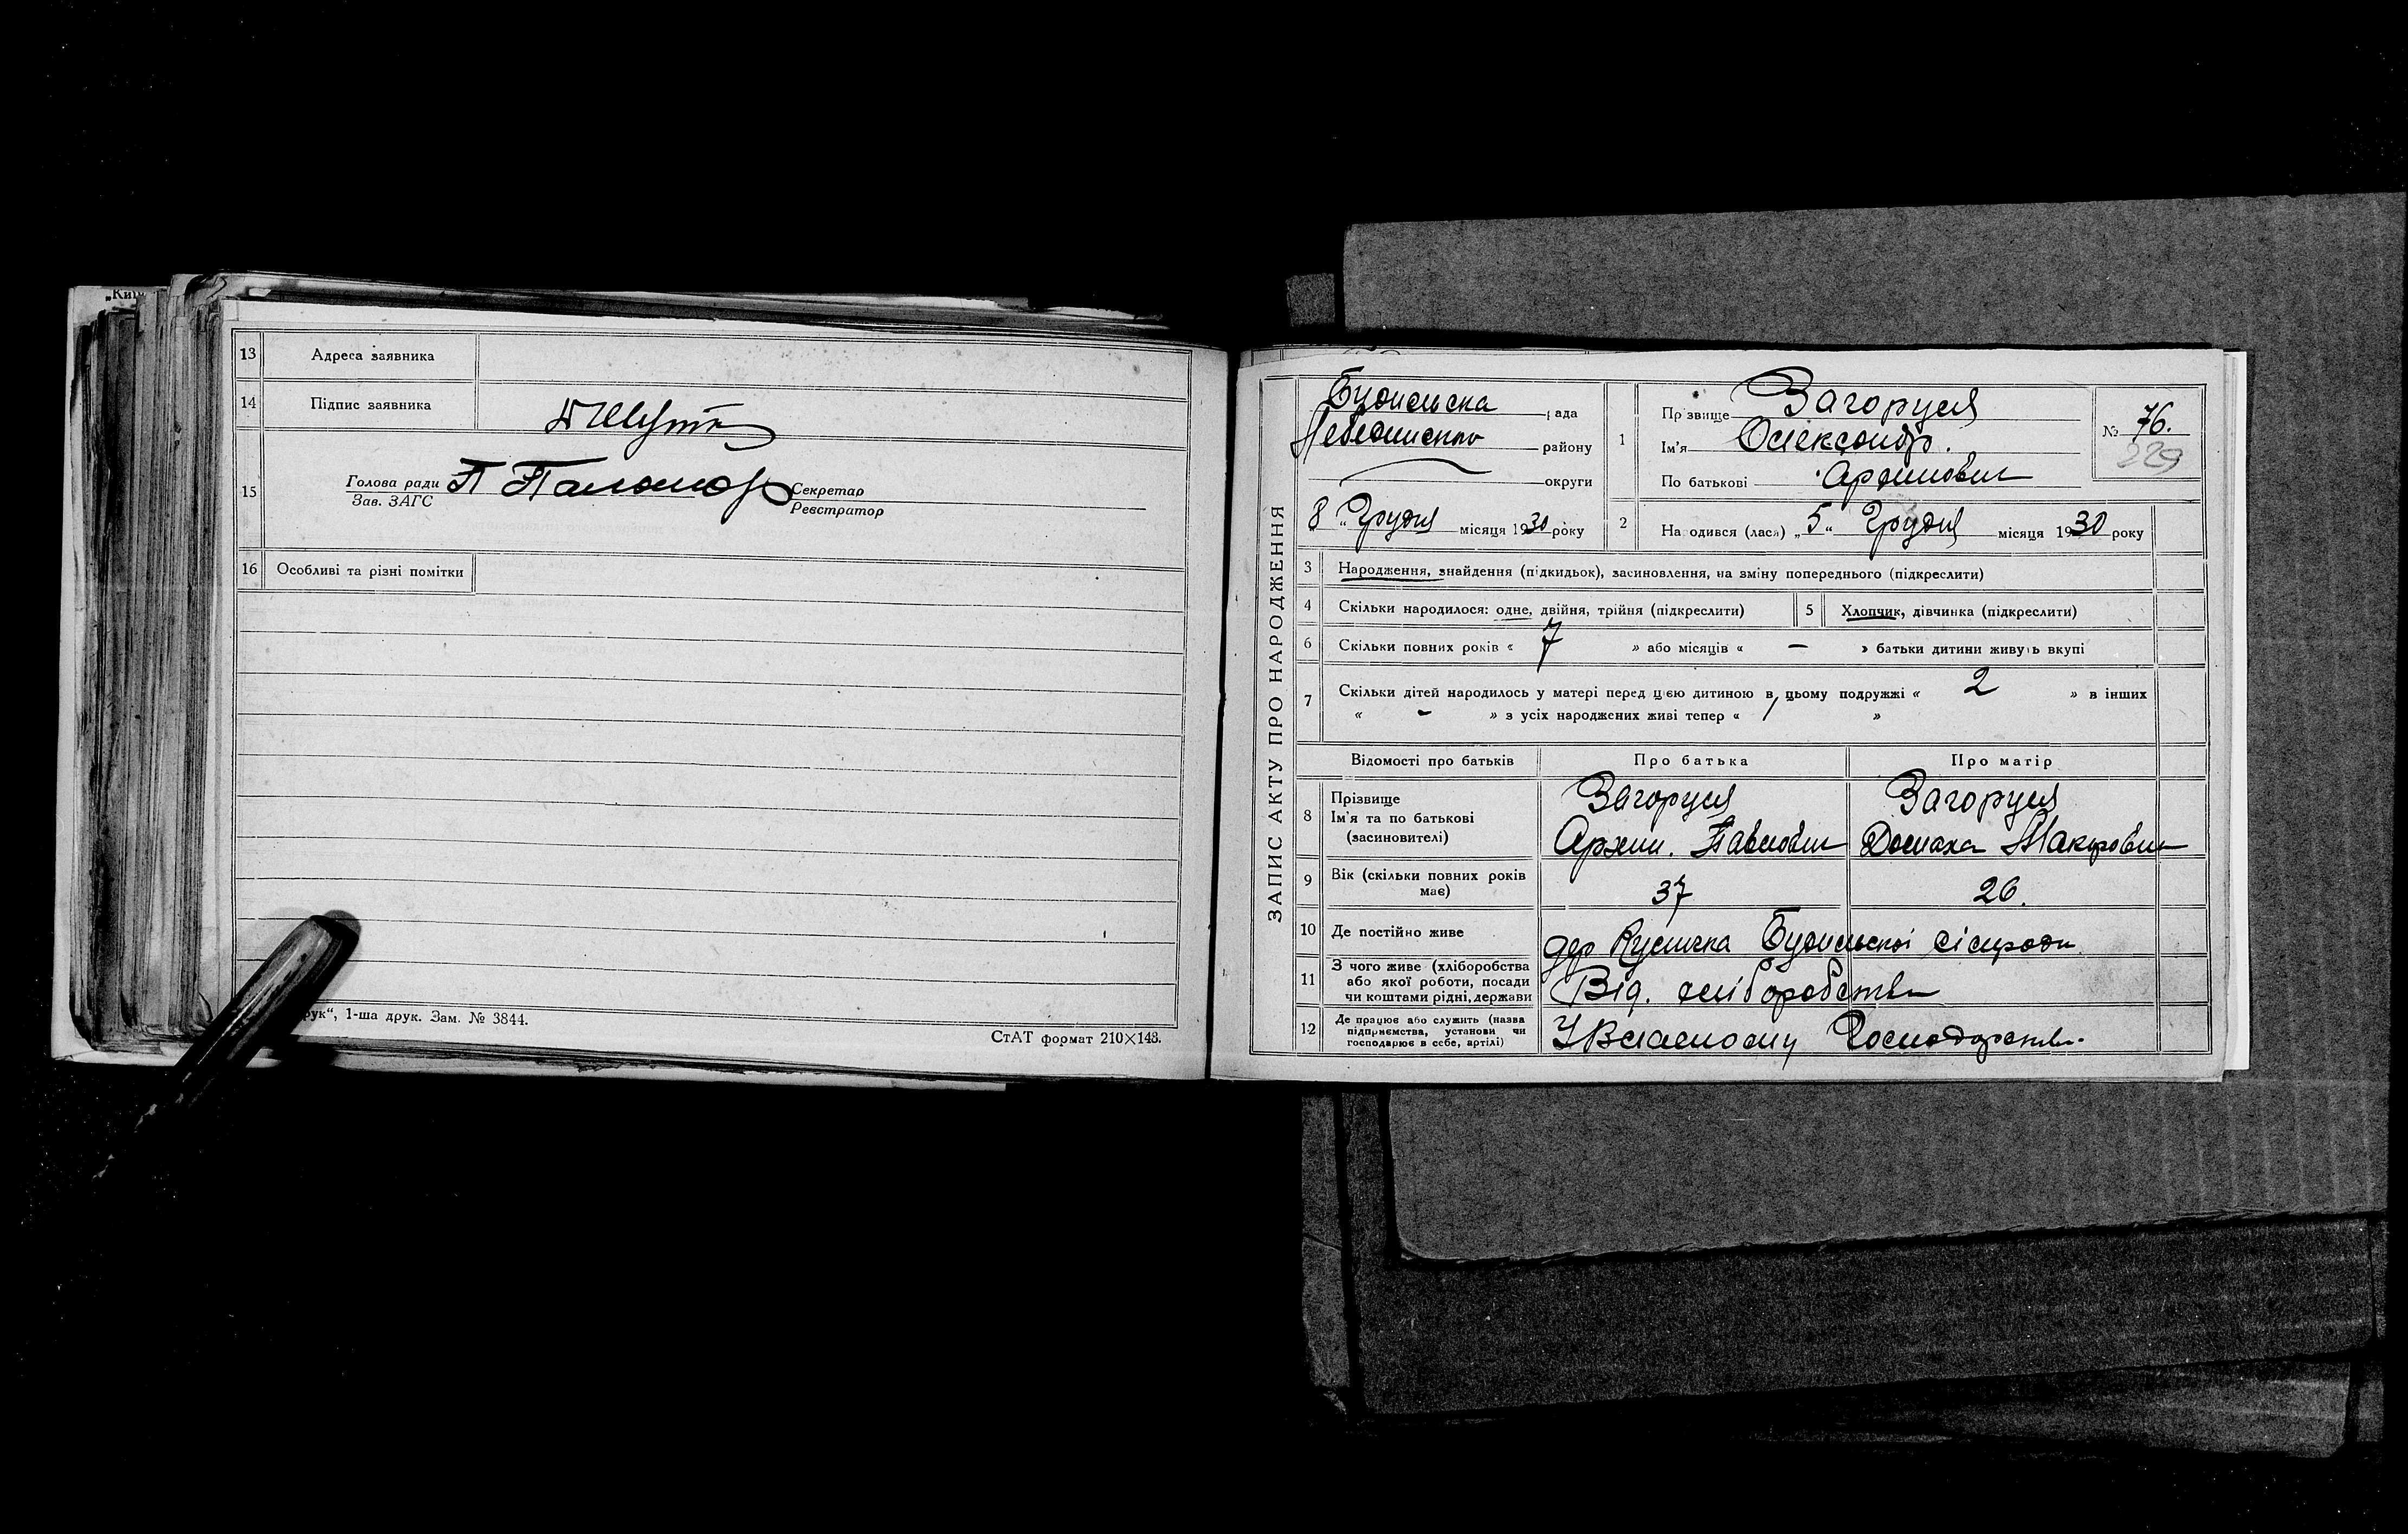 „Ки
13 Адреса заявника
14 Підпис заявника
15 Голова ради П Паламар Секретар
Зав. ЗАГС Реєстратор
16 Особливі та різні помітки
рук“, 1-ша друк. Зам. № 3844.
СтАТ формат 210×143.
ЗАПИС АКТУ ПРО НАРОДЖЕННЯ
Будильска рада
району
округи
8 „ Грудня місяця 1930 року
1 Прізвище Загоруля
Ім'я Олександр.
По батькові
№ 76.
229
2 Народився (лася) „5“ Грудня місяця 1930 року
3 Народження, знайдення (підкидьок), засиновлення, на зміну попереднього (підкреслити)
4 Скільки народилося: одне, двійня, трійня (підкреслити) 5 Хлопчик, дівчинка (підкреслити)
6 Скільки повних років « 7 » або місяців « — » батьки дитини живуть вкупі
7 Скільки дітей народилось у матері перед цією дитиною в цьому подружжі « 2 » в інших
« - » з усіх народжених живі тепер « »
Відомості про батьків Про батька Про матір
8 Прізвище Загоруля Загоруля
Ім'я та по батькові Павлович Домаха Макарович
(засиновителі)
9 Вік (скільки повних років має) 37 26.
10 Де постійно живе дер Будильської сільради
11 З чого живе (хліборобства або якої роботи, посади чи коштами рідні, держави Від. хліборобства
12 Де працює або служить (назва підприємства, установи чи господарює в себе, артілі) У Власному Господарстві.